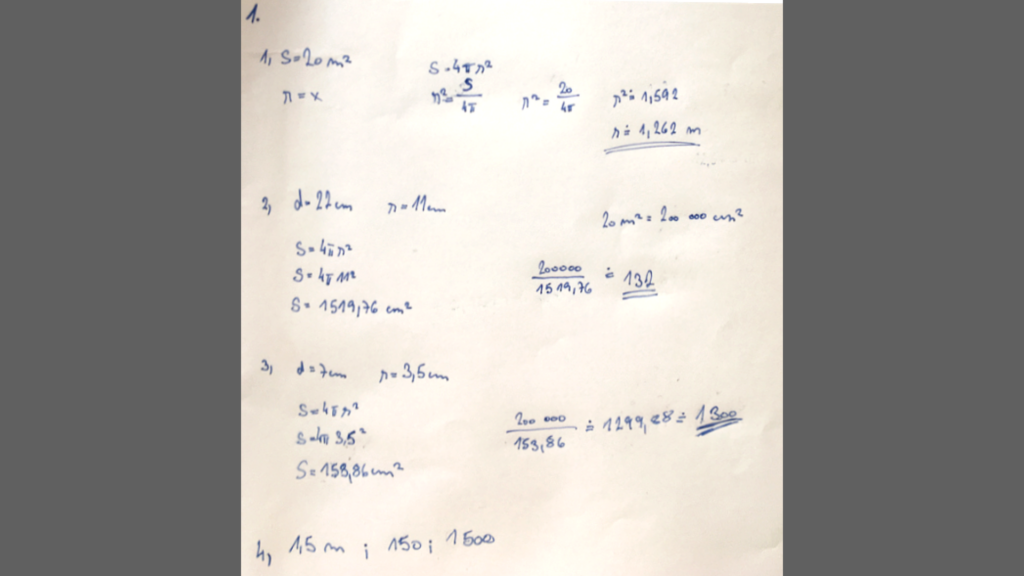 1.
1, S=20 m²
r = x
S=4πr²
r²= S/4π
r² = 20/4π
r² ≐ 1,592
r ≐ 1,262 m
2, d=22cm r=11cm
20 m² = 200 000 cm²
S=4πr²
S=4π11²
S= 1519,76 cm²
200000/1519,76 ≐ 132
3, d=7cm r=3,5cm
S=4πr²
S=4π 3,5²
S=153,86cm²
200 000/153,86 ≐ 1299,88 ≐ 1300
4, 1,5 m ; 150 ; 1500